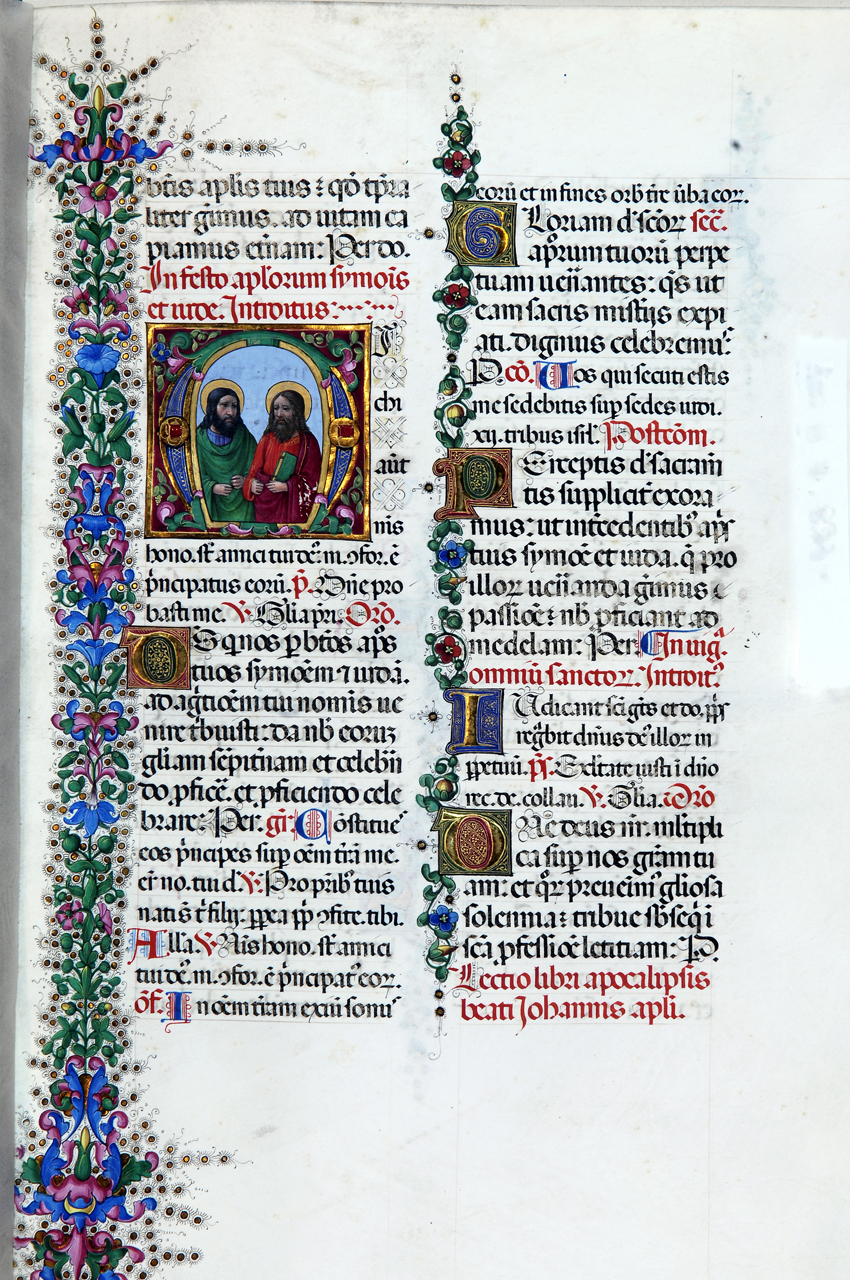 btis aplis tuis ⁊ qd tpra
liter gimus. ad uitam ca
piamus etnam: Per do.
In festo aplorum symois
et iude. Introitus:
M I
chi
aut
nis
hono. st amici tui de'. m. ɔfor. ē
pncipatus eorū. p. Dne pro
basti me. V. Glia pri. Oro.
DS qnos p btos aps
tuos symoem ⁊ iudā.
ad agtioem tui nomis ue
nire tbuisti: da nb eorus
gliam sepitnam et celebri
do, pficē. et pficiendo cele
brare: Per. gr. Cōstitue'
eos pncipes sup oem trā me.
erī no. tui d. V. Pro prib' tuis
nati st t filii: ppea pp ɔfite. tibi.
Alla. V. Nis hono. st amici
tui de'. m. ɔfor. ē pncipat' eor.
Of. In oem tram exiu sonu'
eorū et in fines orb tre ūba eor.
GLoriam d' scor sec.
aprum tuorū perpe
tuam ueīiantes: qs ut
eam sacris mistiis expi
ati. dignius celebremu'.
P. cō. Uos qui secuti estis
me sedebitis sup sedes iudi.
xii. tribus isil. Postcōm.
PErceptis d' sacram
tis supplicit exora
mus: ut intcedentib' aps
tuis symōe et iuda. q pro
illor ueīianda gimus
passiōe: nb pficiant ad
medelam: Per. In uig.
omniū sanctor. Introit'.
IUdicant sci gtes et do. pps
regbit dnius de' illor in
ppetuū. ps. Exltate iusti ī dno
rec. de. collau. V. Glia. Oro
DNe deus nr. mltipli
ca sup nos gram tu
am: et qr preueim' gliosa
solemnia: tribue sbseqi
scā pfessiōe letitiam: P.
Lectio libri apocalipsis
beati Johannis apli.